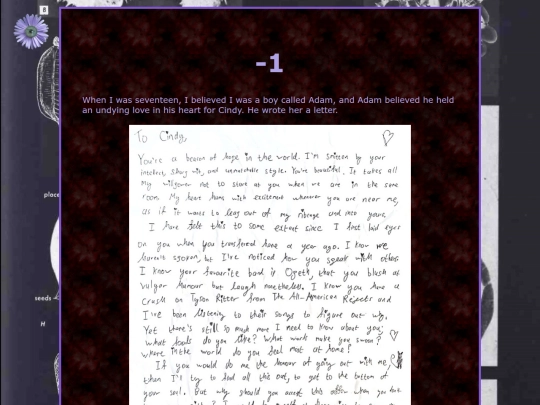 B
-1
When I was seventeen, I believed I was a boy called Adam, and Adam believed he held
an undying love in his heart for Cindy. He wrote her a letter.
To Cindy,
You're a beacon of hope in the world. I'm smitten by your
intellect, sharp wit, and unmatchable style. You're beautiful. It takes all
my willpower not to stare at you when we are in the same
room. My heart hums with excitement whenever you are near me,
as if it wants to leap out of my ribcage and into yours.
I have felt this to some extent since I first laid eyes
on you when you transferred here a year ago. I know we
haven't spoken, but I've noticed how you speak with others
I know your favourite band is Opeth, that you blush at
vulgar humour but laugh nonetheless. I know you have a
crush on Tyson Ritter from The All-American Rejects and
I've been listening to their songs to figure out why.
Yet there's still so much more I need to know about you;
what foods do you like? What work makes you swoon?
Where in the world do you feel most at home?
If you would do me the honour of going out with me,
then I'll try to find all this out, to get to the bottom of
your soul. But why should you accept this offer when you don't
place
seeds
H